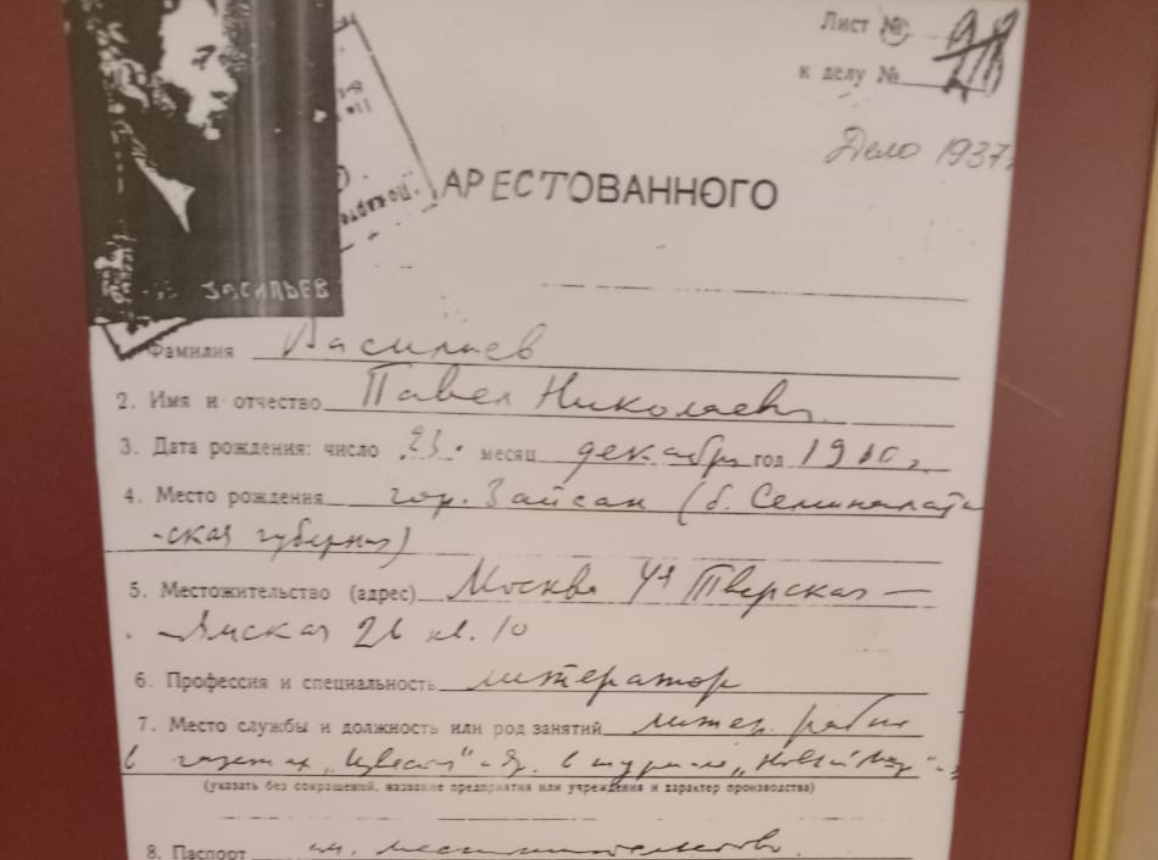 Лист №
к делу №
Дело 1937г.
АРЕСТОВАННОГО
ВАСИЛЬЕВ
Фамилия Васильев
2. Имя и отчество Павел Николаевич
3. Дата рождения: число 23. месяц декабря год 1910 г.
4. Место рождения гор. Зайсан (б. Семипалатин
-ская губерния)
5. Местожительство (адрес) Москва 4я Тверская —
-Ямская 26 кв. 10
6. Профессия и специальность литератор
7. Место службы и должность или род занятий литер. работа
в газетах „Известия" в журнале „Новый Мир"
(указать без сокращений, название предприятия или учреждения и характер производства)
8. Паспорт